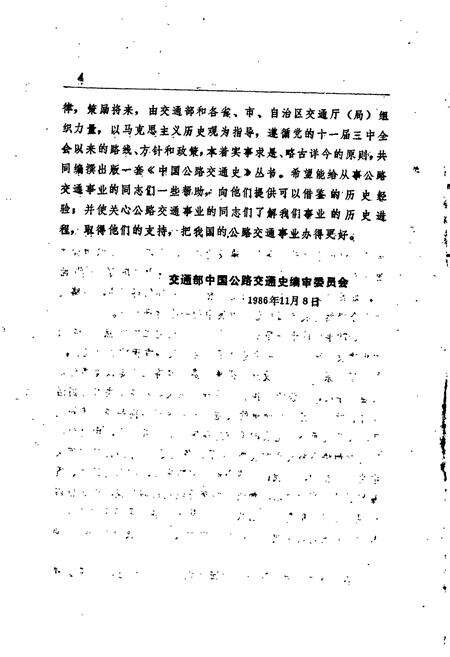 4
律，策励将来，由交通部和各省、市、自治区交通厅（局）组
织力量，以马克思主义历史观为指导，遵循党的十一届三中全
会以来的路线、方针和政策，本着实事求是、略古详今的原则，共
同编撰出版一套《中国公路交通史》丛书。希望能给从事公路
交通事业的同志们一些帮助，向他们提供可以借鉴的历史经
验；并使关心公路交通事业的同志们了解我们事业的历史进
程，取得他们的支持，把我国的公路交通事业办得更好。
交通部中国公路交通史编审委员会
1986年11月8日